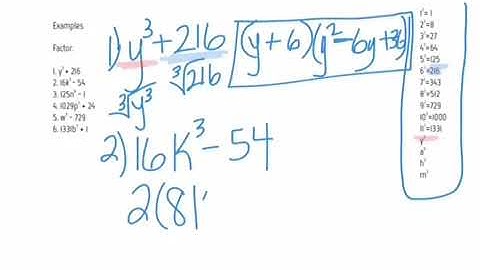 Examples
Factor.
1. y³ + 216
2. 16k³ - 54
3. 125n³ - 1
4. 1029p³ + 24
5. w³ - 729
6. 1331b³ + 1
1) y³ + 216
∛y³ ∛216
(y + 6)(y² - 6y + 36)
2) 16K³ - 54
2(8
1³= 1
2³=8
3³=27
4³=64
5³=125
6³=216
7³=343
8³=512
9³=729
10³=1000
11³=1331
y³
a³
h³
m³